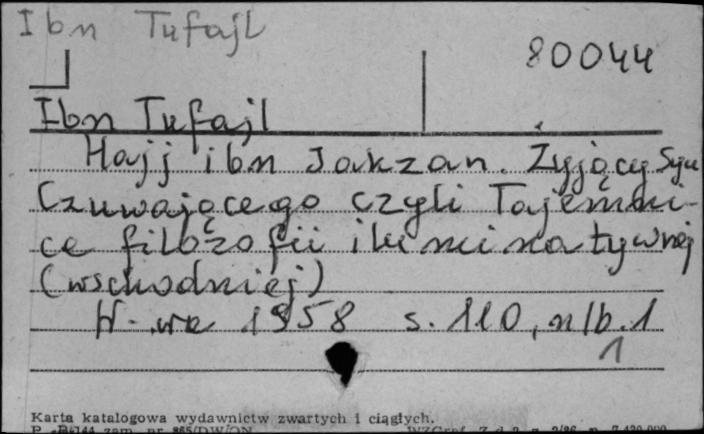 Ibn Tufajl
80044
Ibn Tufajl
Hajj ibn Jakzan. Żyjący Syn
Czuwającego czyli Tajemni-
ce filozofii iluminatywnej
(wschodniej)
W-wa 1958 s. 110, nlb. 1
1
Karta katalogowa wydawnictw zwartych i ciągłych.
zam. nr 865/DW/ON